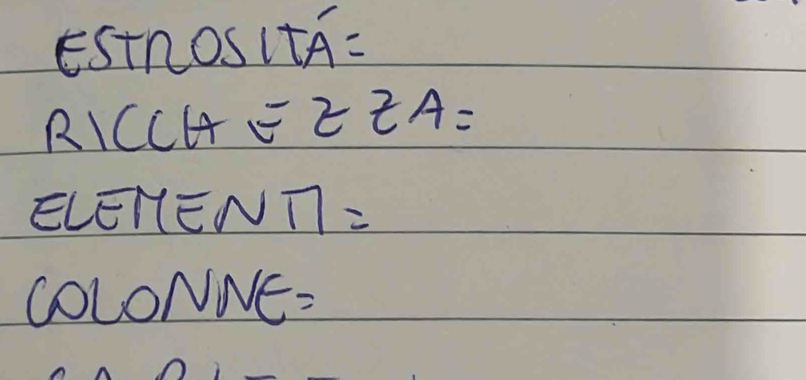 ESTROSITÁ=
RICCHEZZA=
ELEMENTI=
COLONNE=